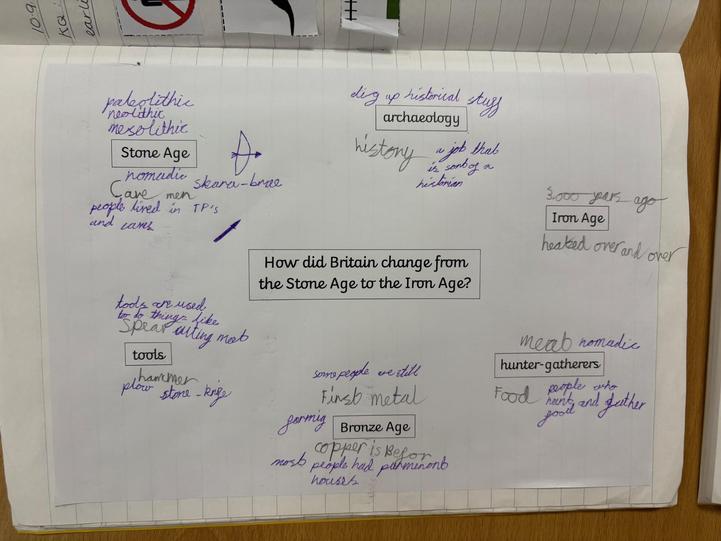 10.9.
KQ:
earlie
paleolithic
neolithic
mesolithic
Stone Age
nomadic
Cave men
skara-brae
people lived in TP's
and caves
dig up historical stuff
archaeology
history
a job that
is sort of a
historian
3,000 years ago
Iron Age
heated over and over
How did Britain change from
the Stone Age to the Iron Age?
tools are used
to do things like
Spear cutting meat
tools
hammer
plow stone-knife
some people are still
First metal
farmig
Bronze Age
copper is Befor
most people had parminont
houses
meat nomadic
hunter-gatherers
Food
people who
hunt and gather
food